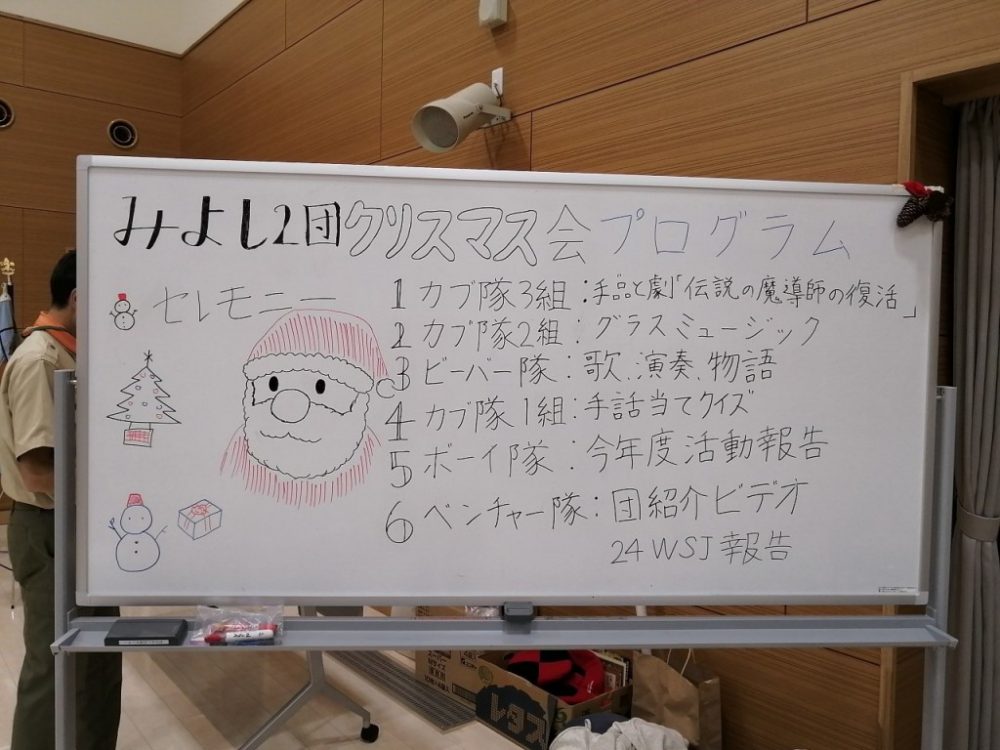 みよし2団クリスマス会プログラム
セレモニー
1 カブ隊3組:手品と劇「伝説の魔導師の復活」
2 カブ隊2組:グラスミュージック
3 ビーバー隊:歌、演奏、物語
4 カブ隊1組:手話当てクイズ
5 ボーイ隊:今年度活動報告
6 ベンチャー隊:団紹介ビデオ
24WSJ報告
レタス